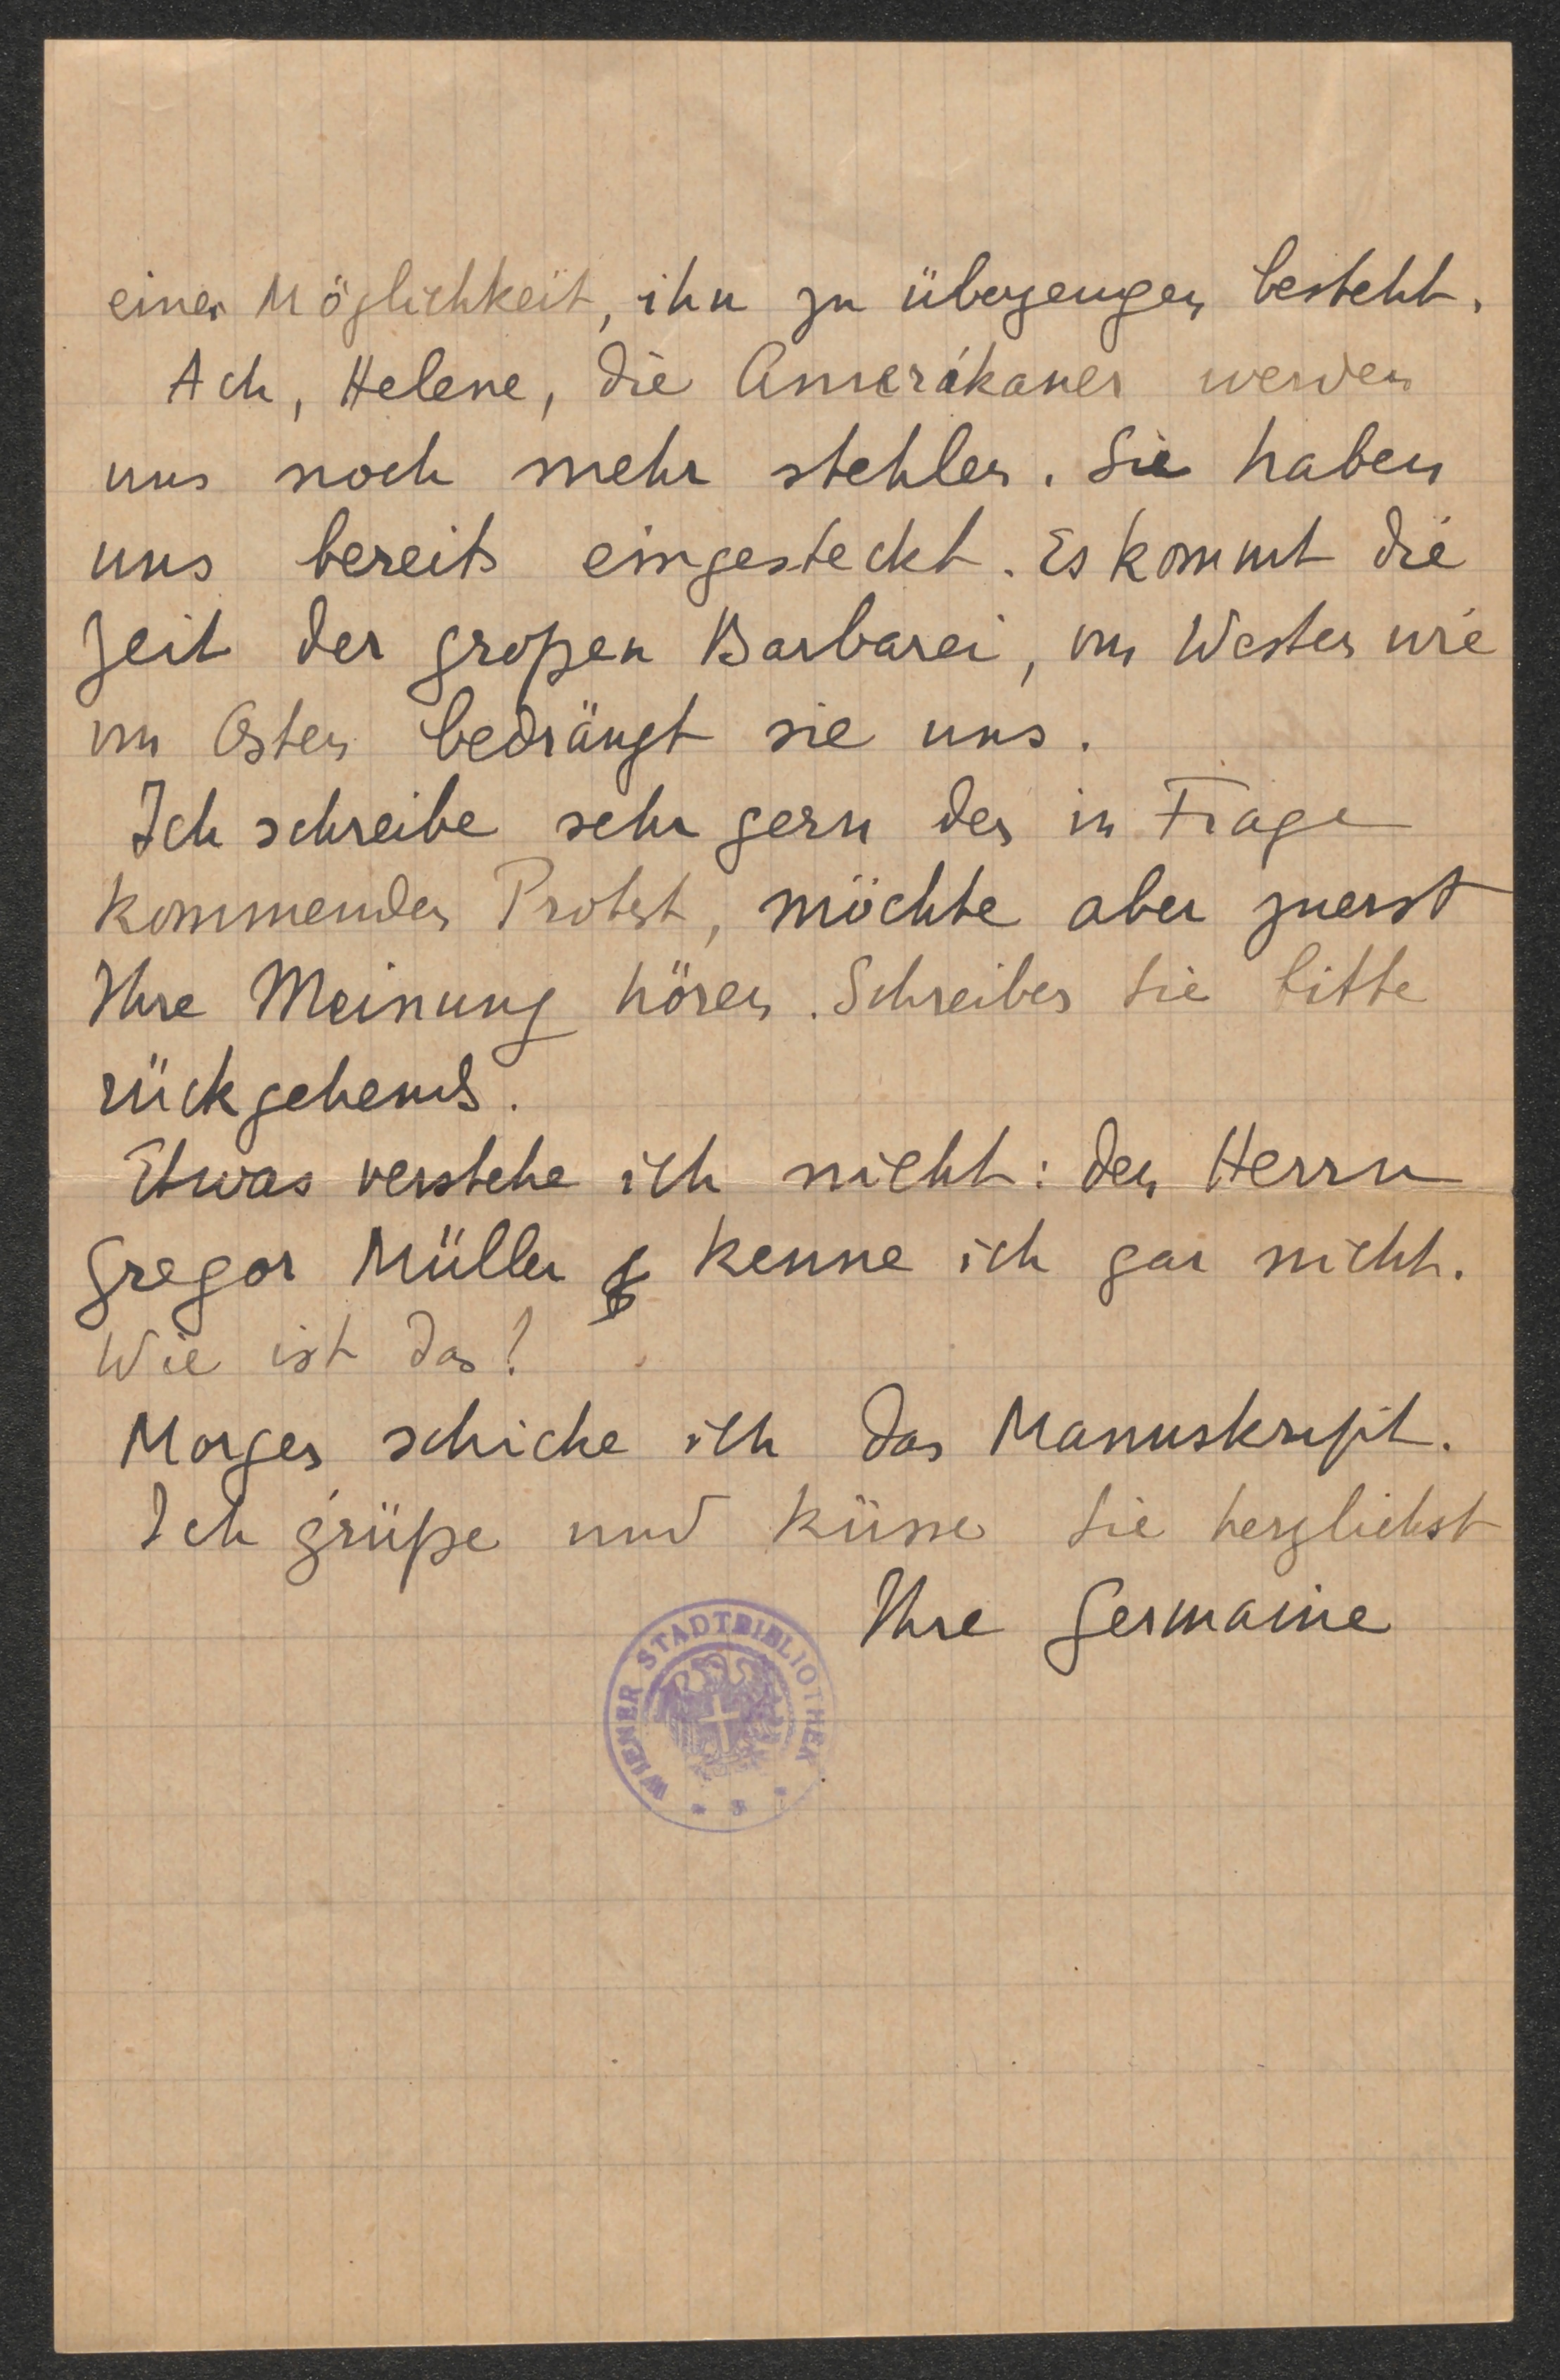 einer Möglichkeit, ihn zu überzeugen besteht.
Ach, Helene, die Amerikaner werden
uns noch mehr stehlen. Sie haben
uns bereits eingesteckt. Es kommt die
Zeit der großen Barbarei, im Westen wie
im Osten bedrängt sie uns.
Ich schreibe sehr gern den in Frage
kommenden Protest, möchte aber zuerst
Ihre Meinung hören. Schreiben Sie bitte
rückgehends.
Etwas verstehe ich nicht: den Herrn
Gregor Müller kenne ich gar nicht.
Wie ist das?
Morgen schicke ich das Manuskript.
Ich grüße und küsse Sie herzlichst
Ihre Germaine
WIENER STADTBIBLIOTHEK